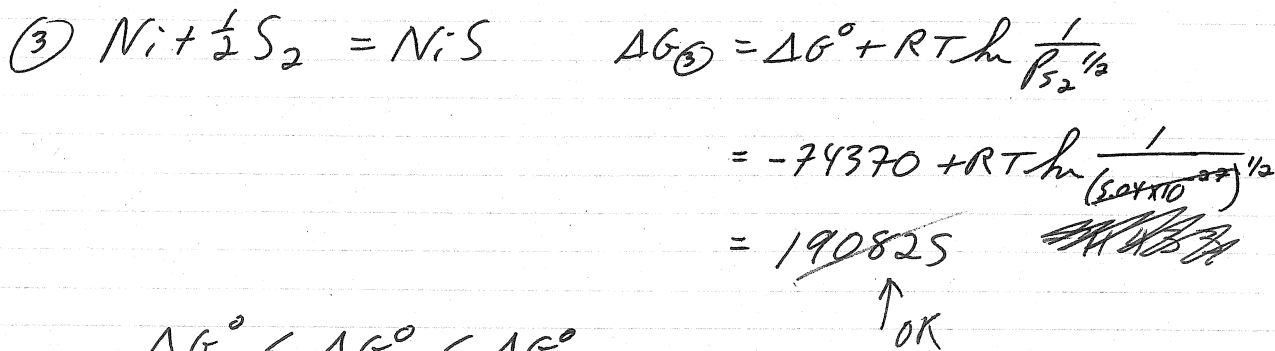 ③ Ni + ½ S₂ = NiS ΔG③ = ΔG° + RT ln 1/P_S₂^1/2
= -74370 + RT ln 1/(5.04×10^-27)^1/2
= 190825
↑ OK
ΔG° < ΔG° < ΔG°